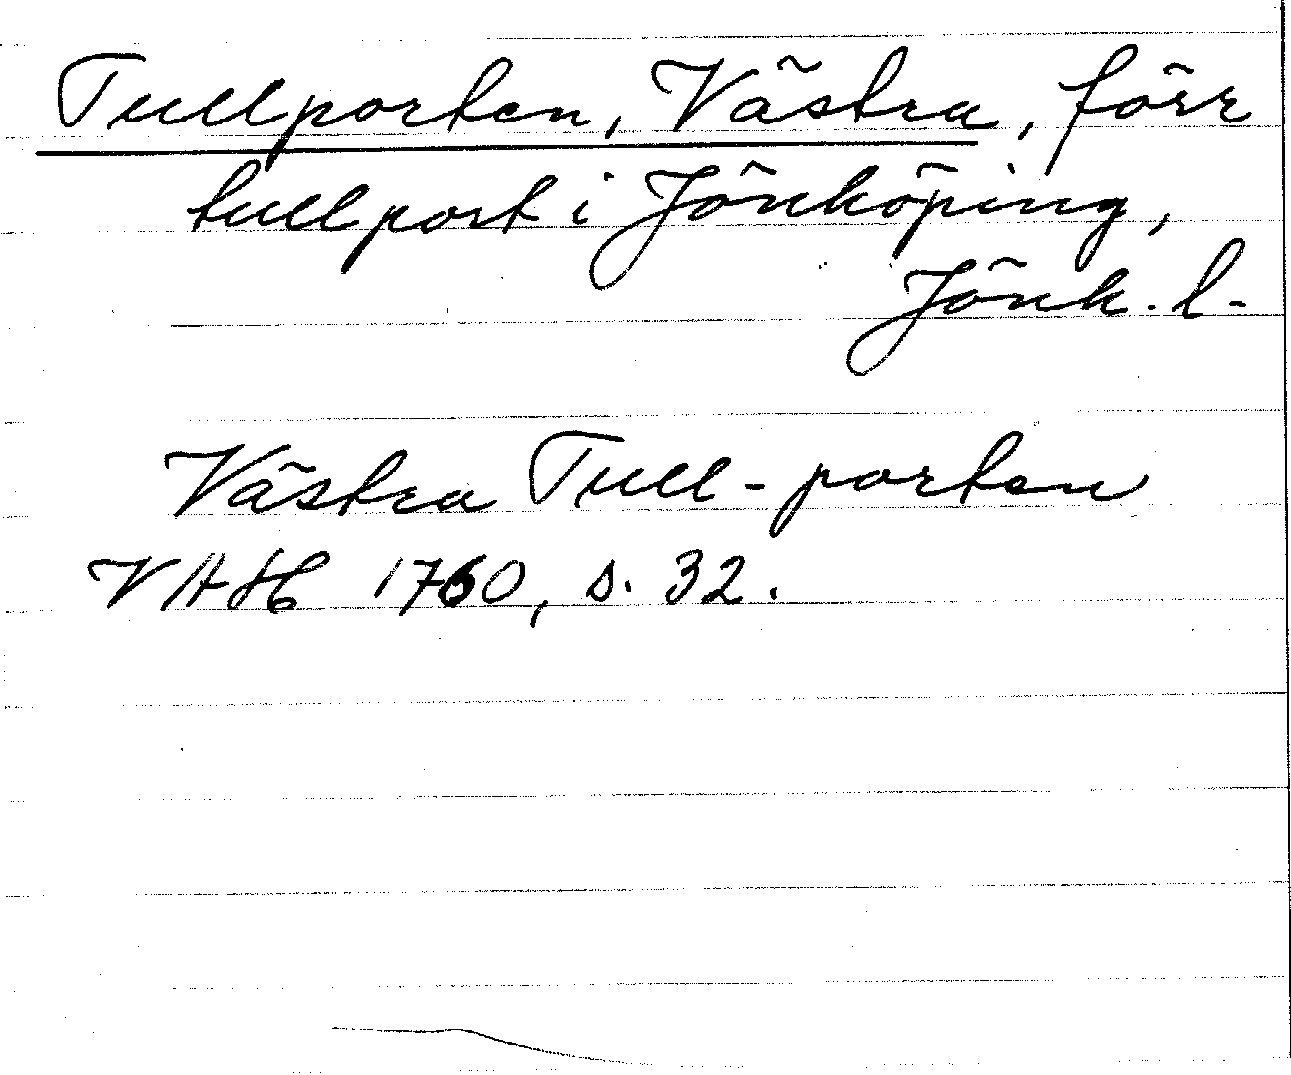 Tullporten, Västra, förr
tullport i Jönköping,
Jönk. l.
Västra Tull-porten
VAH 1760, s. 32.